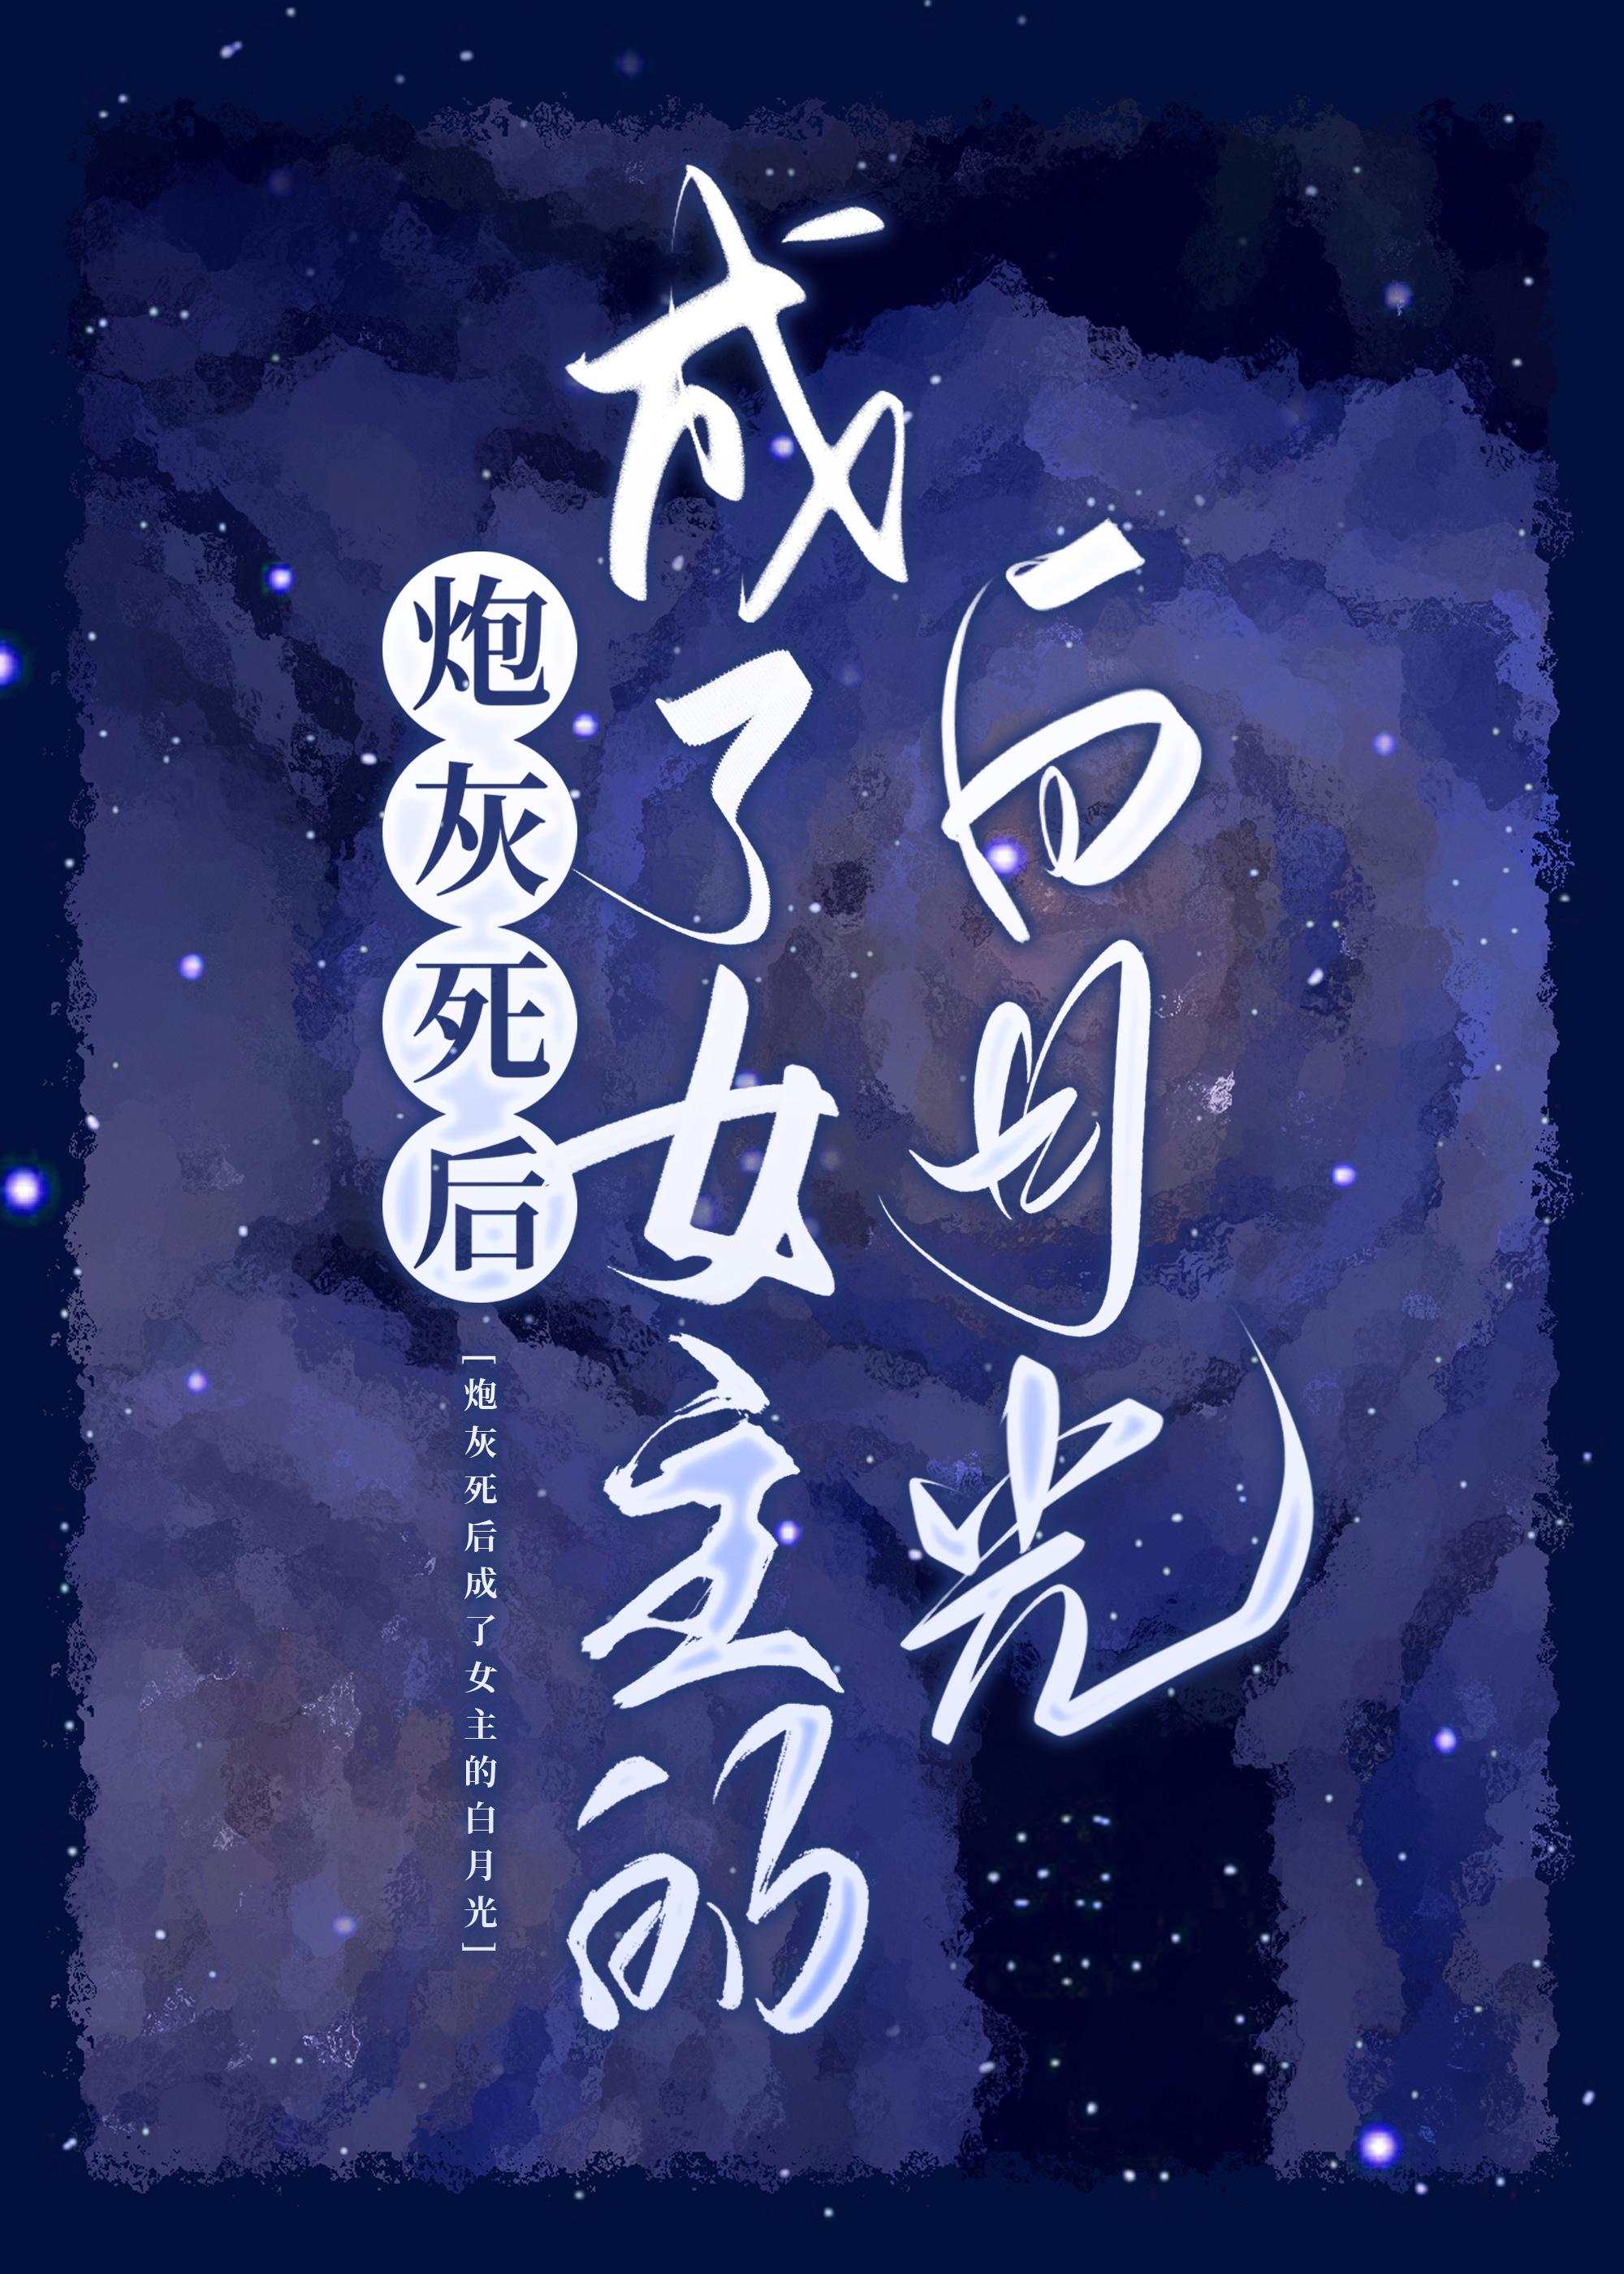 炮灰死后
成了女主的
白月光
[炮灰死后成了女主的白月光]